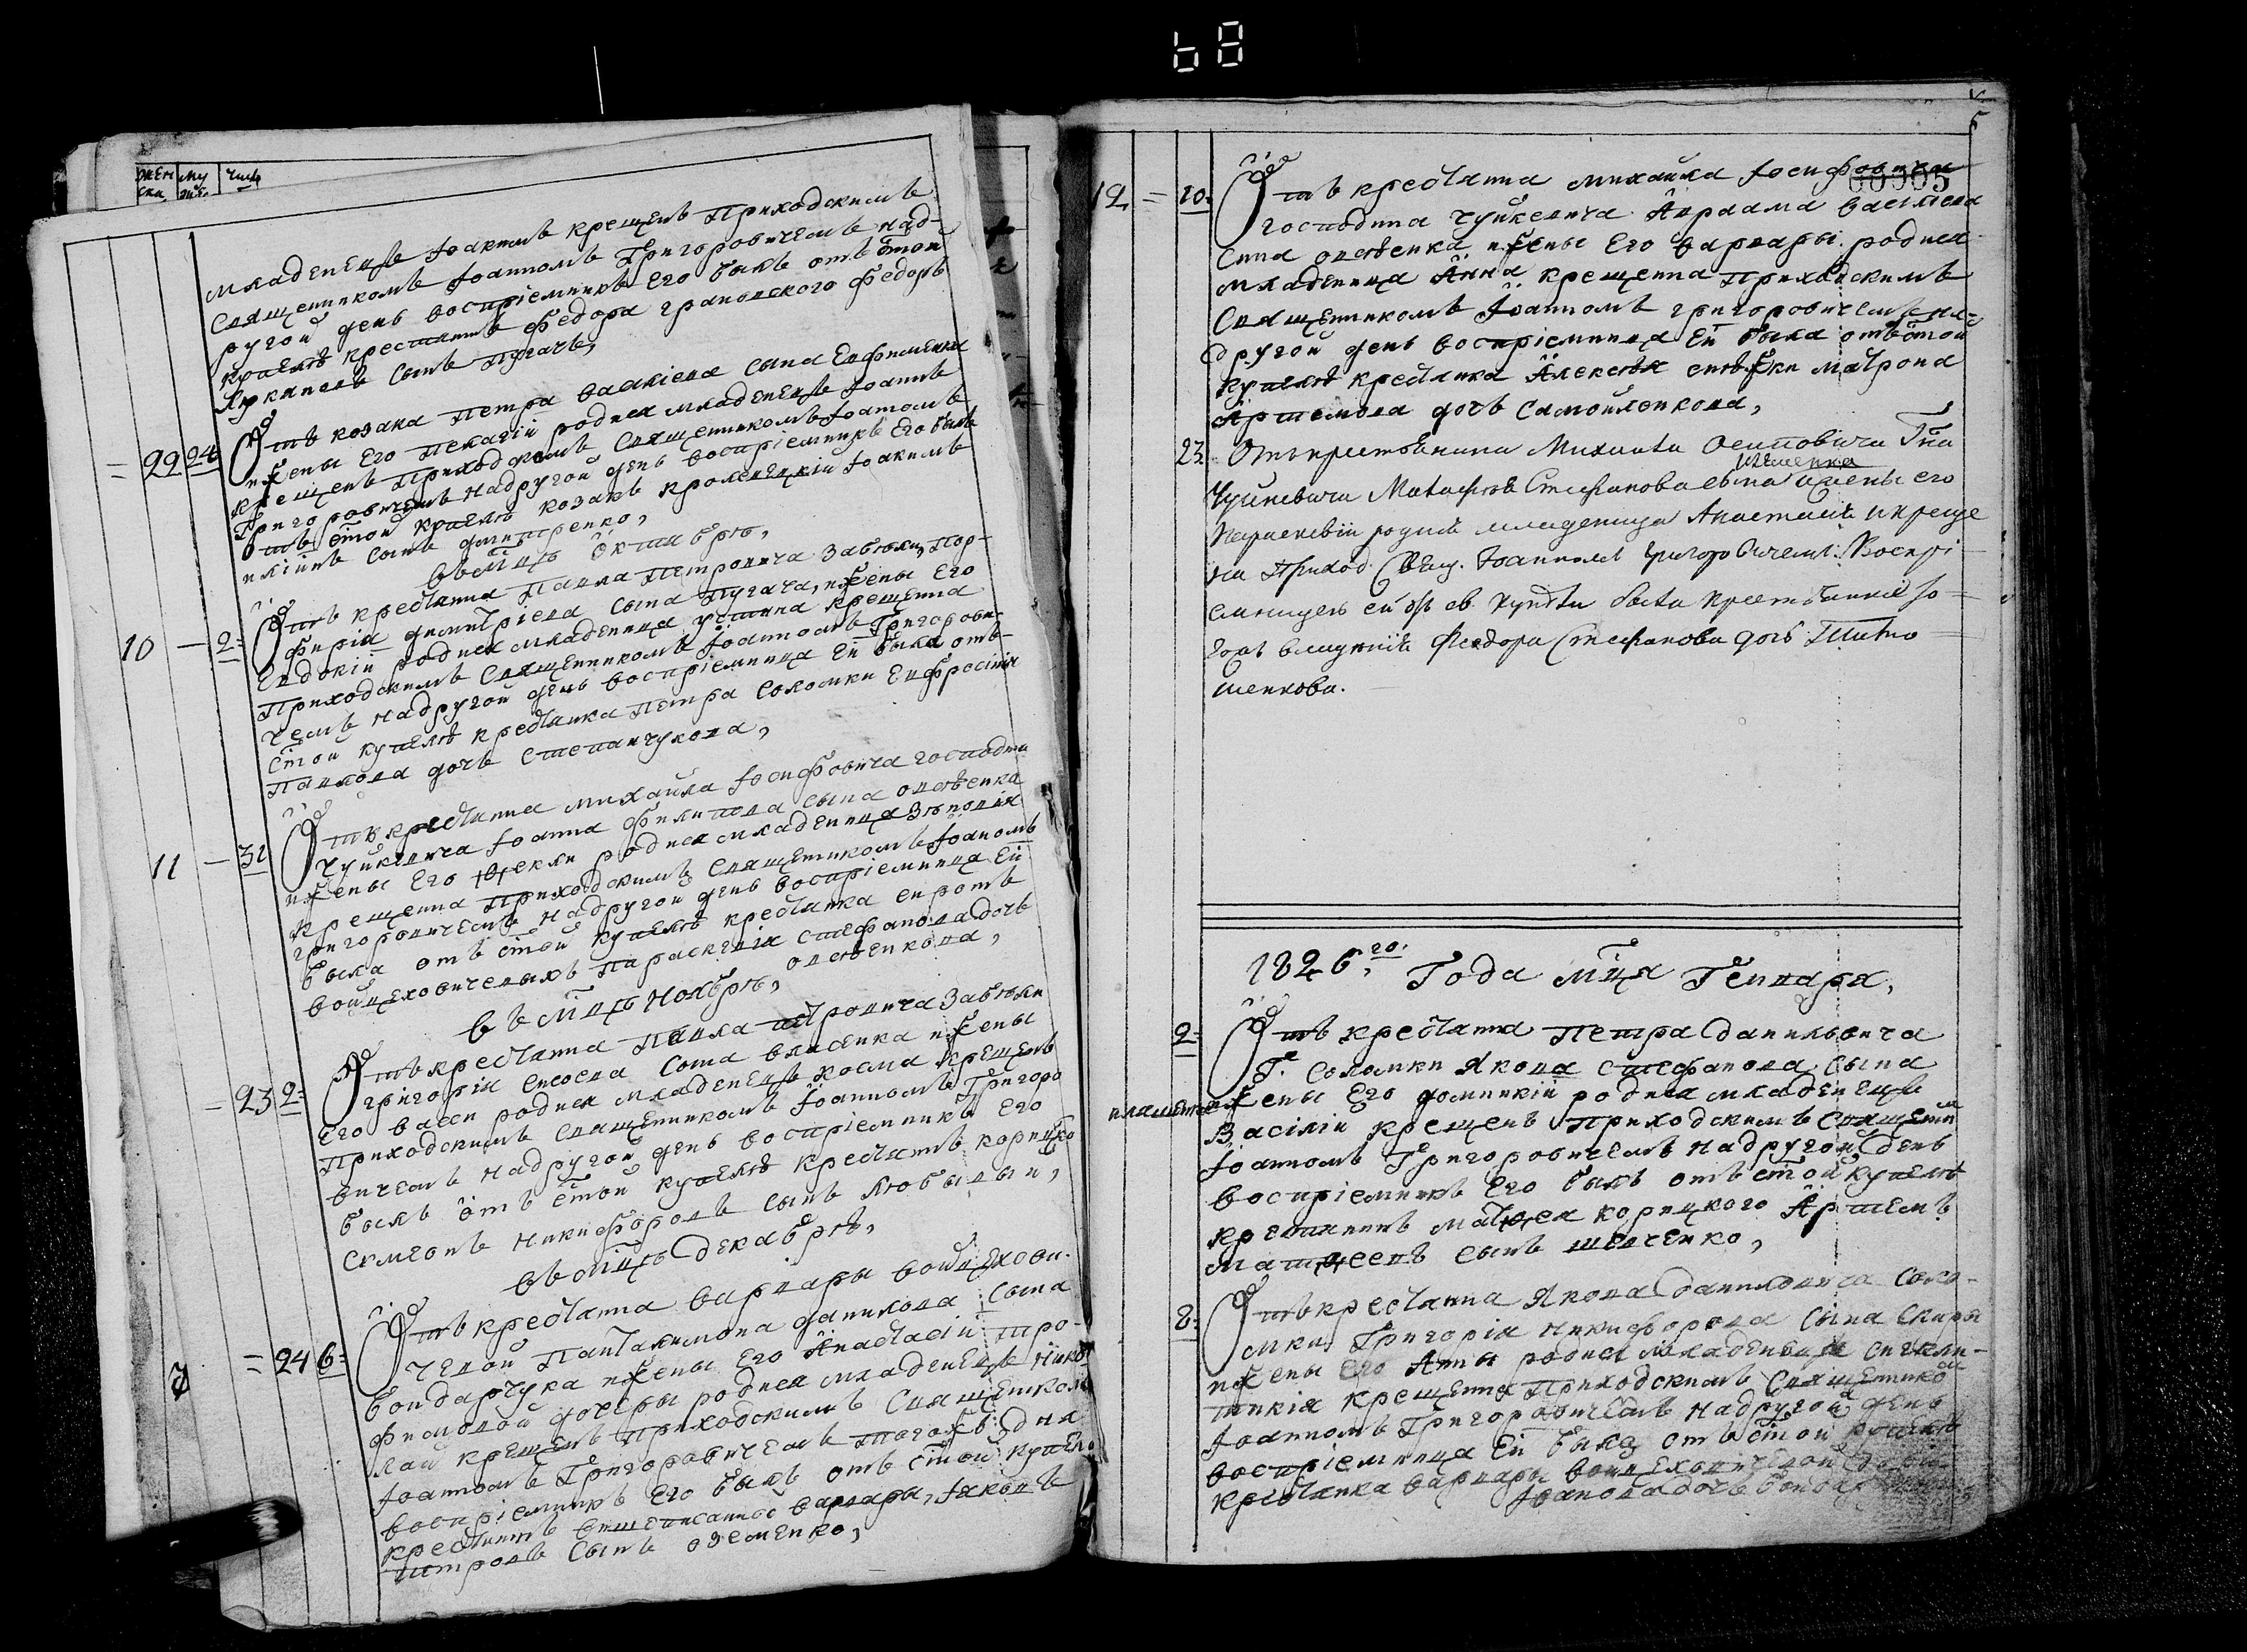 женски
муже.
числ
младенецъ Іоакимъ крещенъ Приходскимъ
Священникомъ Іоанномъ Григоровичемъ над-
ругой день воспріемникъ Его былъ отъ стой
купелѣ крестянинъ Федора грановского Федоръ
сынъ Пугачъ,
= 22 24 Отъ козака Петра Василіева сына Евфименка
иżены Его Пелагіи родися младенецъ Іоаннъ
крещенъ Приходскимъ Священникомъ Іоаномъ
Григоровичемъ надругой день воспріемникъ Его былъ
отъ стой купелѣ козакъ Іоакимъ
сынъ дмитренко,
вмцѣ Октябрѣ,
10 — 2= Отъ крестянина Павла Петровича Забѣлы, Пор-
фирія димитріева сына Пугача, иżены Его
Евдокіи родися младеница устина крещенна
Приходскимъ Священникомъ Іоанномъ Григорови-
чемъ надругой день воспріемница Ей была отъ
стой купелѣ крестянка Петра Соломки Евфросинія
Павлова дочь Степанчукова,
11 — 31 Отъ крестянина михайла Іосифовича господина
чуйкевича Іоанна Филипова сына олѣенка
иżены Его Ѳекли родися младеница Зѣновія
крещенна Приходскимъ Священникомъ Іоаномъ
григоровичемъ надругой день воспріемница Ей
была отъ стой купелѣ крестянка сиротъ
войцеховичевыхъ Параскевія стефанова дочь
олѣенкова,
въ мцѣ Ноябрѣ,
= 23 2= Отъ крестянина Павла петровича Забѣли
григорія сисоева сына власенка иżены
Его васси родися младенецъ косма крещенъ
Приходскимъ Священникомъ Іоанномъ Григоро
вичемъ надругой день воспріемникъ Его
былъ отъ стой купелѣ крестянинъ корицко
Симеонъ Никифоровъ сынъ Любывый,
въ мцѣ декабрѣ,
7 = 24 6= Отъ крестянина варвары войцехови-
чевой Пантелимона данилова сына
бондарчука иżены Его Анастасіи тро-
фимовой дочеры родися младенецъ Нико-
лай крещенъ Приходскимъ Священником
Іоанномъ Григоровичемъ тогоżъ дня
воспріемникъ Его былъ отъ стой купелѣ
крестянинъ вишеписанной варвары, Іаковъ
петровъ сынъ оземенко,
5
00905
12 = 20: Отъ крестянина михайла Іосифовича
господина чуйкевича Авраама василева
сина олѣенка иżены Его варвары родися
младеница Анна крещенна Приходскимъ
Священникомъ Іоанномъ григоровичемъ на-
другой день воспріемница Ей была отъ стой
купелѣ крестянка Алексѣя снѣżки матрона
Артемова дочь Самойленкова,
23. Отъ крестьянина Михаила Осиповича Гна
Чуйкевича Матфѣя Стефанова сына ивженка и жены его
Параскевіи родися младеница Анастасія и креще
на Приход. Свящ. Іоанномъ Григоровичемъ. Воспрі
емницею ей отъ св. купѣли была крестьянки
Феодора Стефанова дочь Тито
шенкова.
1826,го Года мѣца Генваря,
2= Отъ крестянина Петра даниловича
Г. Соломки Якова стефанова сына
иżены Его доминикіи родися младенецъ
Василій крещенъ Приходскимъ Священ
Іоанномъ Григоровичемъ Надругой день
воспріемникъ Его былъ отъ стой купелѣ
крестянинъ матѳея корицкого Артемъ
матѳеевъ сынъ шевченко,
8= Отъ крестянина Якова даниловича соло-
мки Григорія никифорова сына скиры
иżены его Анны родися младеница сигкли-
тикія крещенна Приходскимъ Священико
Іоанномъ Григоровичемъ Надругой день
воспріемница Ей была отъ стой купелѣ
крестянка варвары войцеховичевой
Іванова дочь